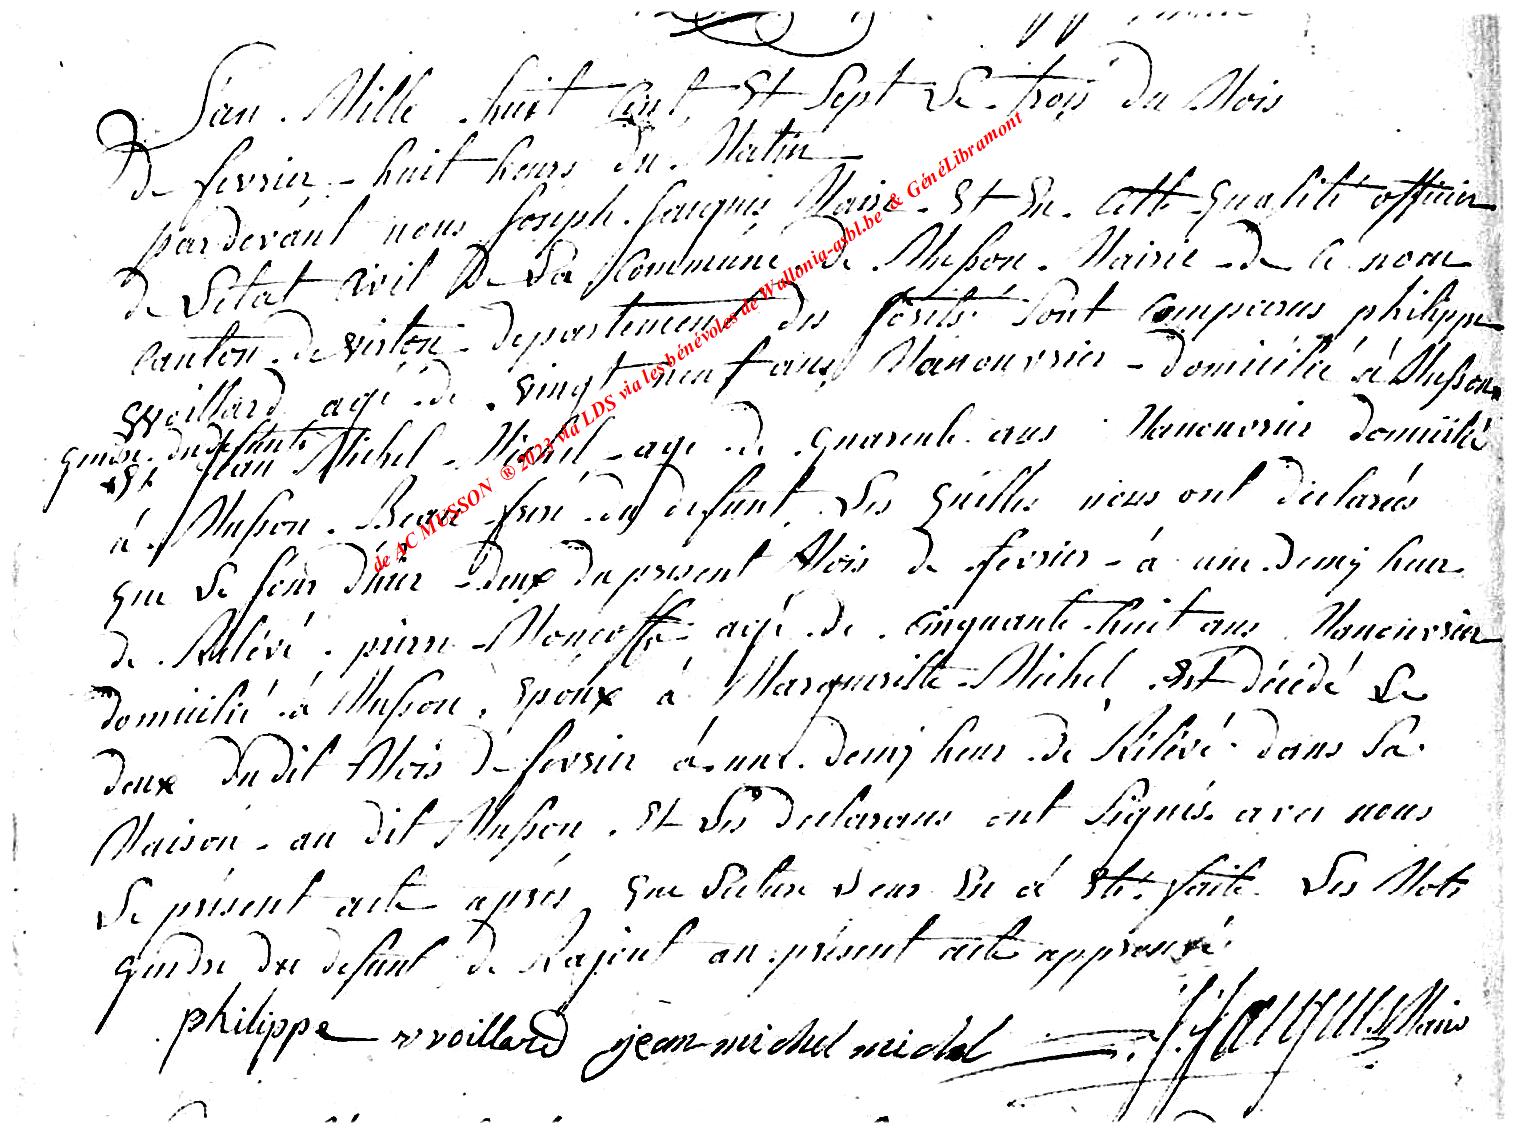 L'an Mille huit Cent Et Sept Le trois du Mois
De fevrier - huit heurs du Matin
pardevant nous Joseph Jacques Maire Et En cette qualité officier
de L'état Civil De La Commune de Musson Mairie de Ce nom
Canton de virton departement des forêts Sont Comparus philippe
woillard agé de vingt neuf ans Manouvrier - domicilié á Musson
gendre du defunte
Et Jean Michel Michel agé de quarente ans Manouvrier domicilié
á Musson Beau frere du defunt Les quilles nous ont declarés
que Le Jour d'hier deux du present Mois de fevrier - á une demij heur
de Rélévé pierre Moncousse agé de cinquante huit ans Manouvrier
domicilié á Musson, Epoux á Margueritte Michel Est décédé Le
deux du dit Mois De fevrier á une demij heur de Rélévé dans Sa
Maison - au dit Musson Et Les declarans ont Signés avec nous
Le présent acte aprés que Lecture Leur En á Eté faite Les Mots
gendre du defunt de Rajout au présent acte approuvé
philippe wvoillard jean michel michel J: Jacques Maire
de AC MUSSON ® 2023 via LDS via les bénévoles de Wallonia-asbl.be & GénéLibramont